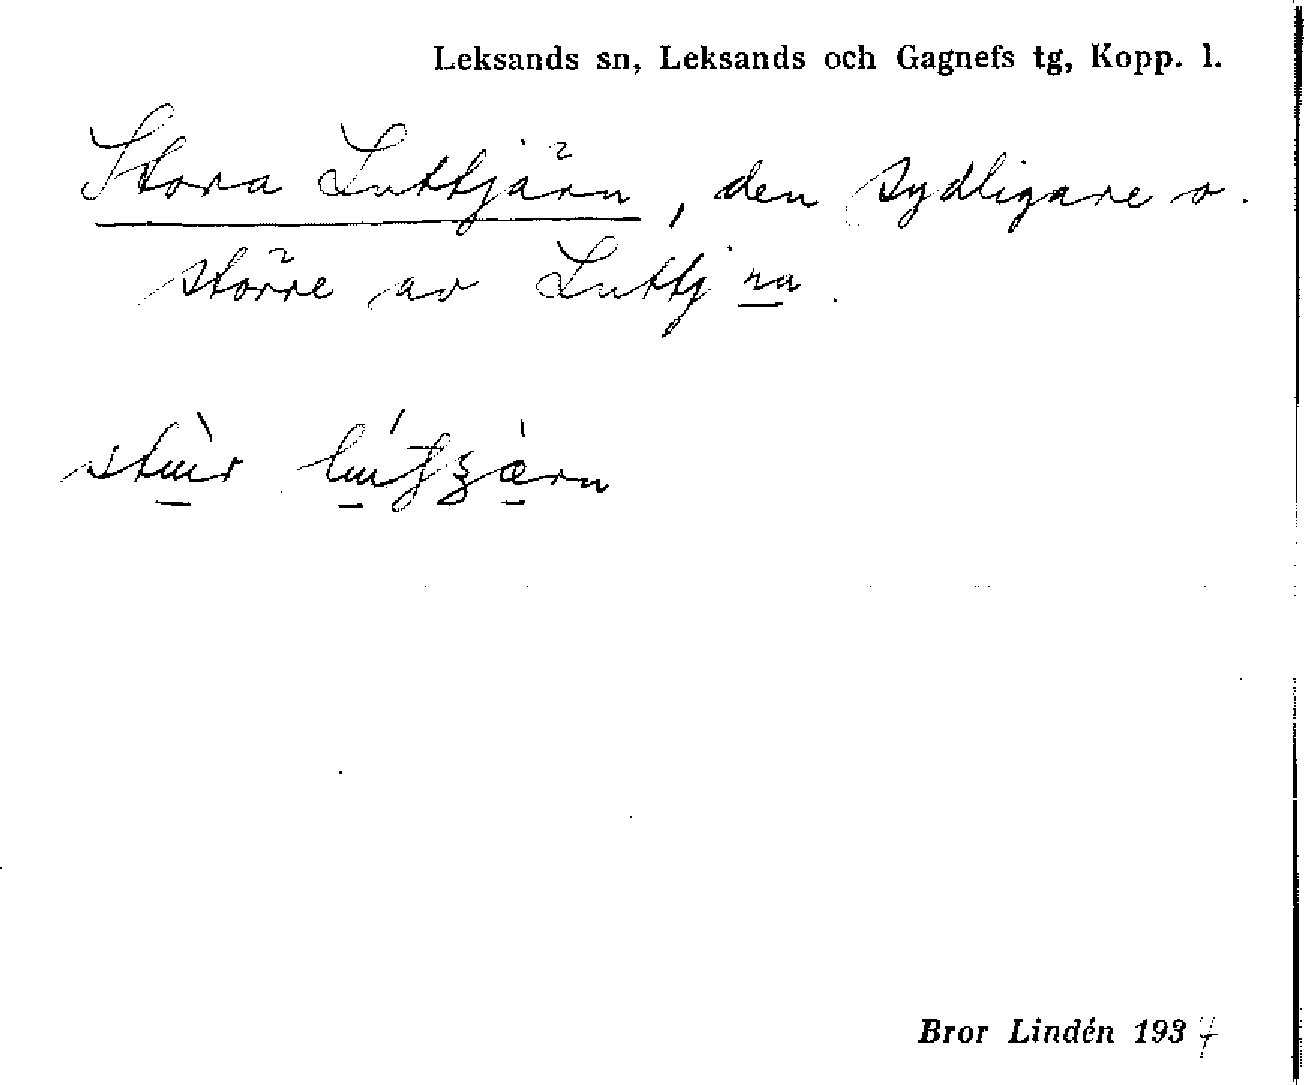 Leksands sn, Leksands och Gagnefs tg, Kopp. l.
Stora Luttjärn, den sydligare o.
större av Luttj:na.
Bror Lindén 1934